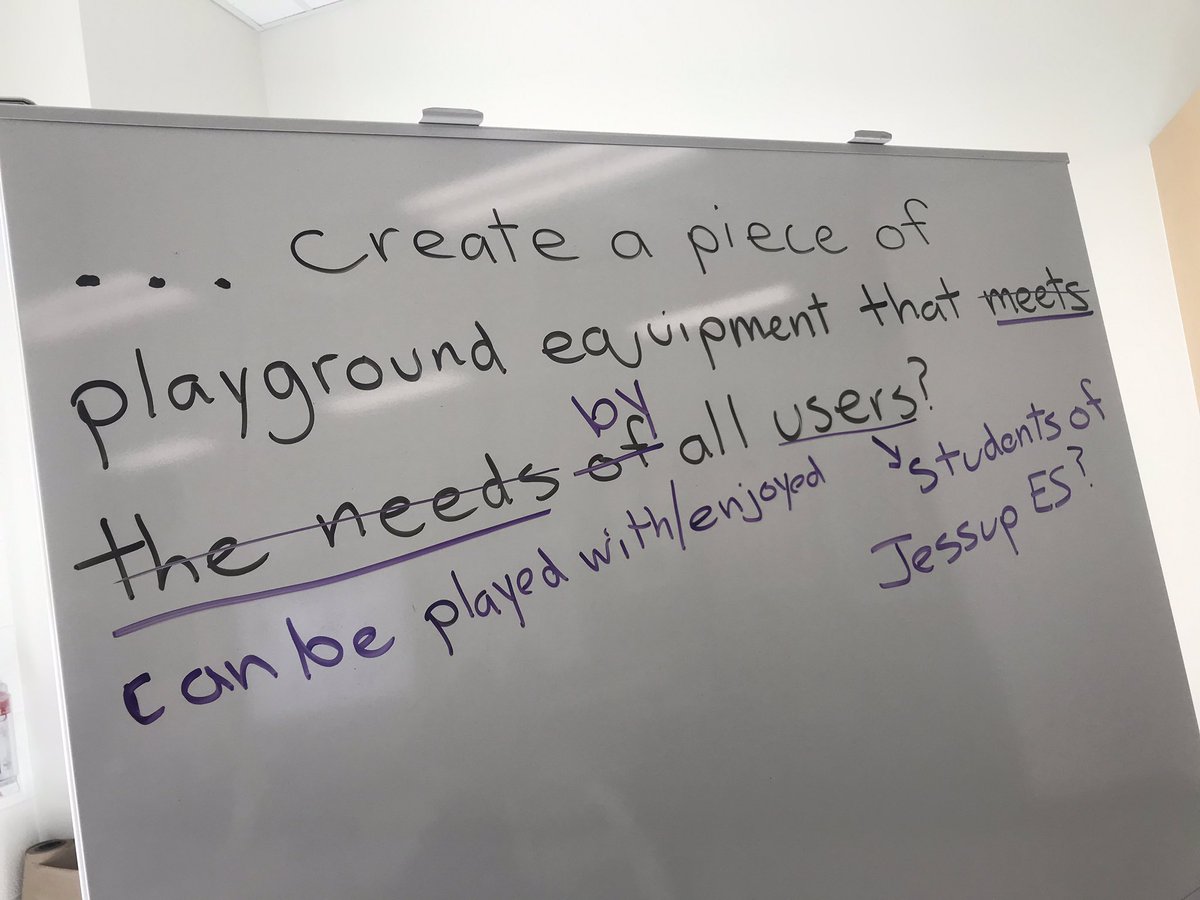 ... Create a piece of
playground equipment that meets
by
the needs of all users?
can be played with/enjoyed
students of
Jessup ES?